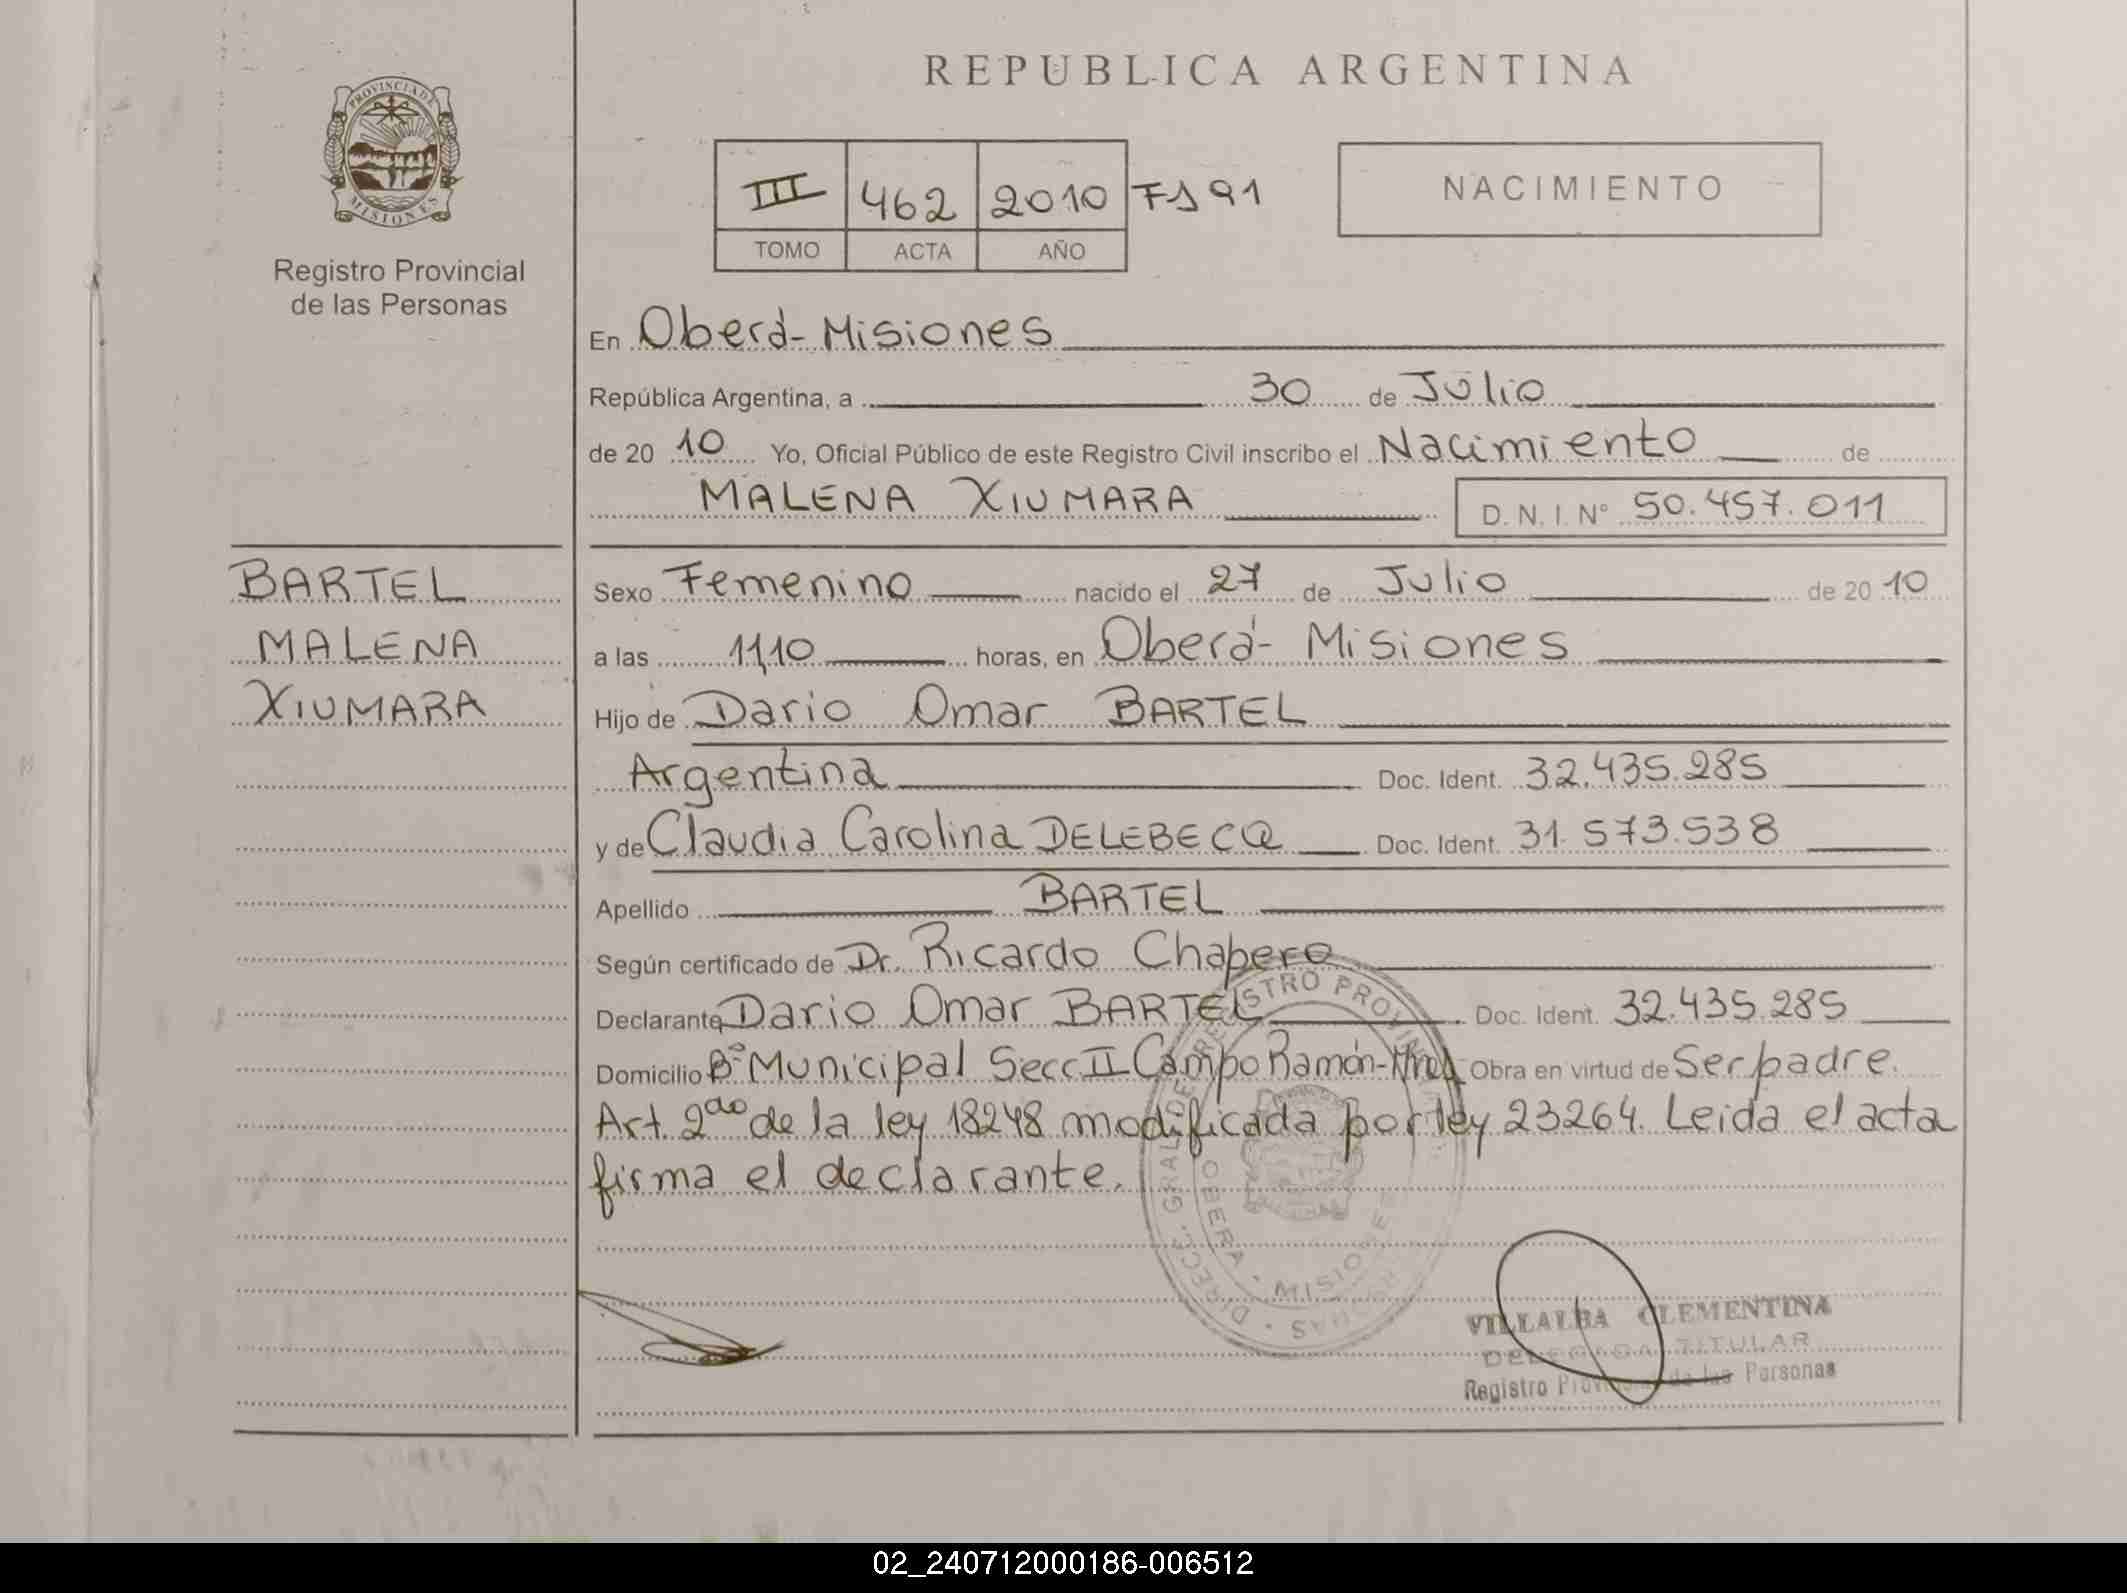 REPUBLICA ARGENTINA
PROVINCIA DE
MISIONES
Registro Provincial
de las Personas
III 462 2010 Fs 91
TOMO ACTA AÑO
NACIMIENTO
En Oberá - Misiones
República Argentina, a 30 de Julio
de 20 10 Yo, Oficial Público de este Registro Civil inscribo el Nacimiento de
MALENA XIUMARA D. N. I. N° 50.457.011
BARTEL
MALENA
XIUMARA
Sexo Femenino nacido el 27 de Julio de 20 10
a las 11,10 horas, en Oberá - Misiones
Hijo de Dario Omar BARTEL
Argentina Doc. Ident. 32.435.285
y de Claudia Carolina DELEBECQ Doc. Ident. 31.573.538
Apellido BARTEL
Según certificado de Dr. Ricardo Chapero
Declarante Dario Omar BARTEL Doc. Ident. 32.435.285
Domicilio Bº Municipal Secc II Campo Ramón - Obra en virtud de Ser padre.
Art. 2do de la ley 18248 modificada por ley 23264. Leida el acta
firma el declarante.
OBERA - MISIONES
VILLALBA CLEMENTINA
DELEGADA TITULAR
Registro Provincial de las Personas
02_240712000186-006512